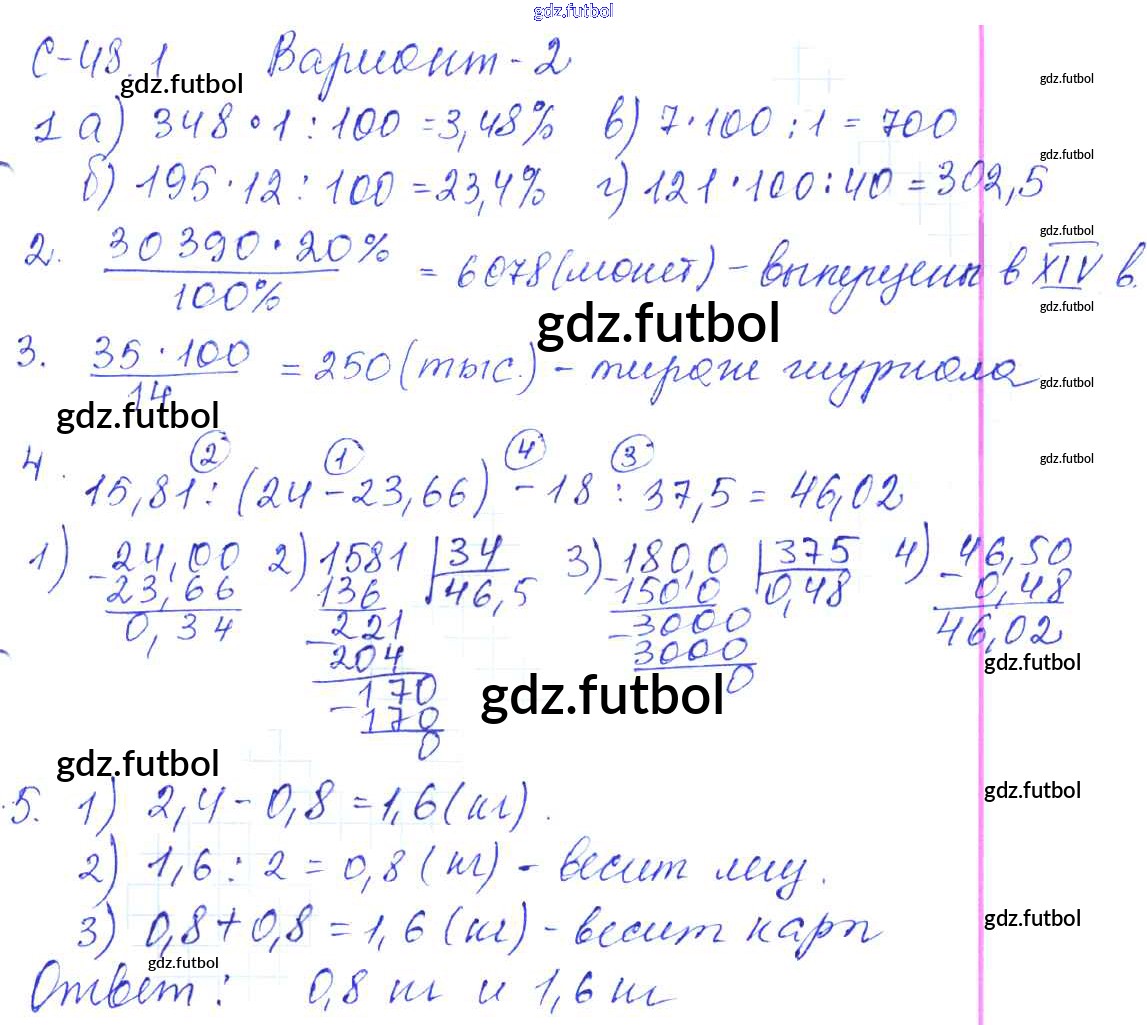 gdz.futbol
С-48.1 Вариант-2
gdz.futbol gdz.futbol
1 а) 348 · 1 : 100 = 3,48% в) 7 · 100 : 1 = 700
gdz.futbol
б) 195 · 12 : 100 = 23,4% г) 121 · 100 : 40 = 302,5
gdz.futbol
2. 30 390 · 20% / 100% = 6078 (монет) - выпущены в XIV в.
gdz.futbol gdz.futbol
3. 35 · 100 / 14 = 250 (тыс.) - тираж журнала
gdz.futbol gdz.futbol
gdz.futbol
② ① ④ ③
4. 15,81 : (24 - 23,66) - 18 : 37,5 = 46,02
1) 24,00 2) 1581 | 34 3) 180,0 | 375 4) 46,50
- 23,66 136 46,5 - 150,0 0,48 - 0,48
0,34 - 221 - 3000 46,02
204 3000 gdz.futbol
- 170 0 gdz.futbol
170
0
gdz.futbol gdz.futbol
5. 1) 2,4 - 0,8 = 1,6 (кг).
2) 1,6 : 2 = 0,8 (кг) - весит лещ.
3) 0,8 + 0,8 = 1,6 (кг) - весит карп
gdz.futbol gdz.futbol
Ответ: 0,8 кг и 1,6 кг